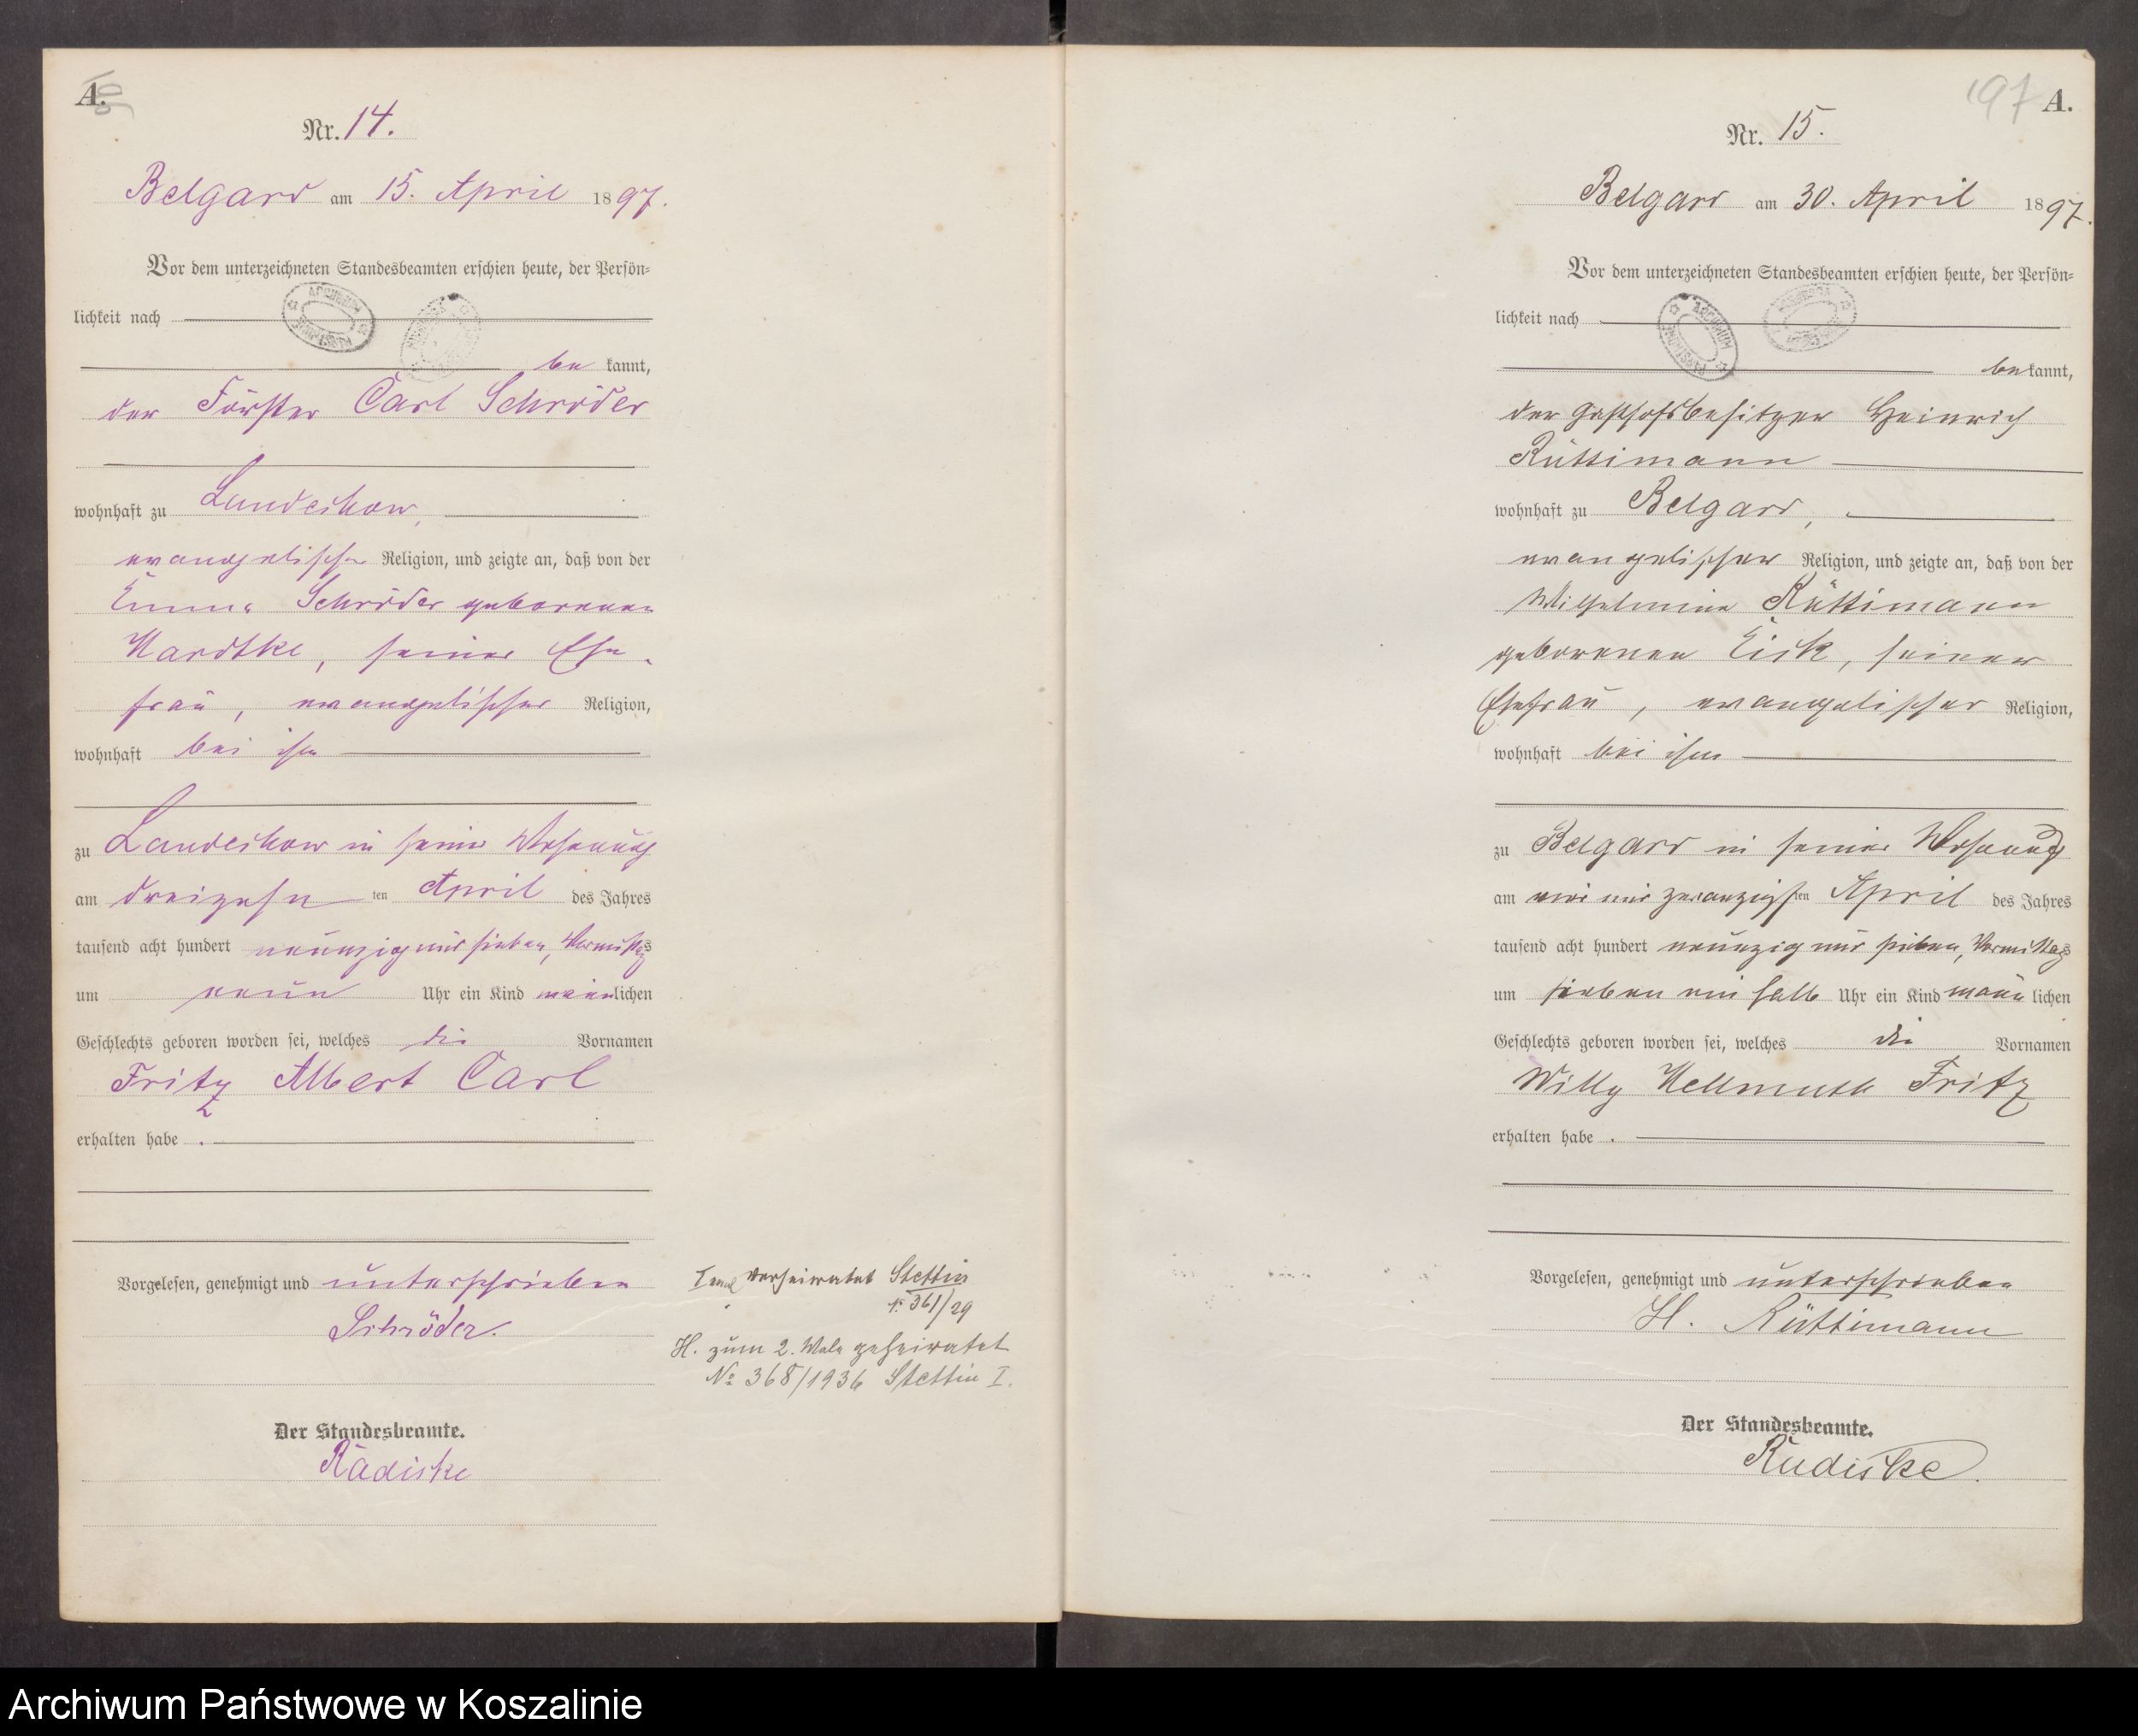 A.
Nr. 14.
Belgard am 15. April 1897.
Vor dem unterzeichneten Standesbeamten erschien heute, der Persön=
lichkeit nach
be kannt,
der Förster Carl Schröder
wohnhaft zu Landechow,
evangelischer Religion, und zeigte an, daß von der
Emma Schröder geborenen
Hardtke, seiner Ehe-
frau, evangelischer Religion,
wohnhaft bei ihm
zu Landechow in seiner Wohnung
am dreizehn ten April des Jahres
tausend acht hundert neunzig und sieben, Vormittags
um neun Uhr ein Kind männlichen
Geschlechts geboren worden sei, welches die Vornamen
Fritz Albert Carl
erhalten habe.
Vorgelesen, genehmigt und unterschrieben
Schröder.
Der Standesbeamte.
Radiske
verheiratet Stettin
361/29
H. zum 2. Male geheiratet
No 368/1936 Stettin I.
197 A.
Nr. 15.
Belgard am 30. April 1897.
Vor dem unterzeichneten Standesbeamten erschien heute, der Persön=
lichkeit nach
be kannt,
der Gasthofsbesitzer Heinrich
Rüttimann
wohnhaft zu Belgard,
evangelischer Religion, und zeigte an, daß von der
Wilhelmine Rüttimann
geborenen Eick, seiner
Ehefrau, evangelischer Religion,
wohnhaft bei ihm
zu Belgard in seiner Wohnung
am ein und zwanzigsten April des Jahres
tausend acht hundert neunzig und sieben, Vormittags
um sieben ein halb Uhr ein Kind männ lichen
Geschlechts geboren worden sei, welches die Vornamen
Willy Hellmuth Fritz
erhalten habe.
Vorgelesen, genehmigt und unterschrieben
H. Rüttimann
Der Standesbeamte.
Radiske.
Archiwum Państwowe w Koszalinie